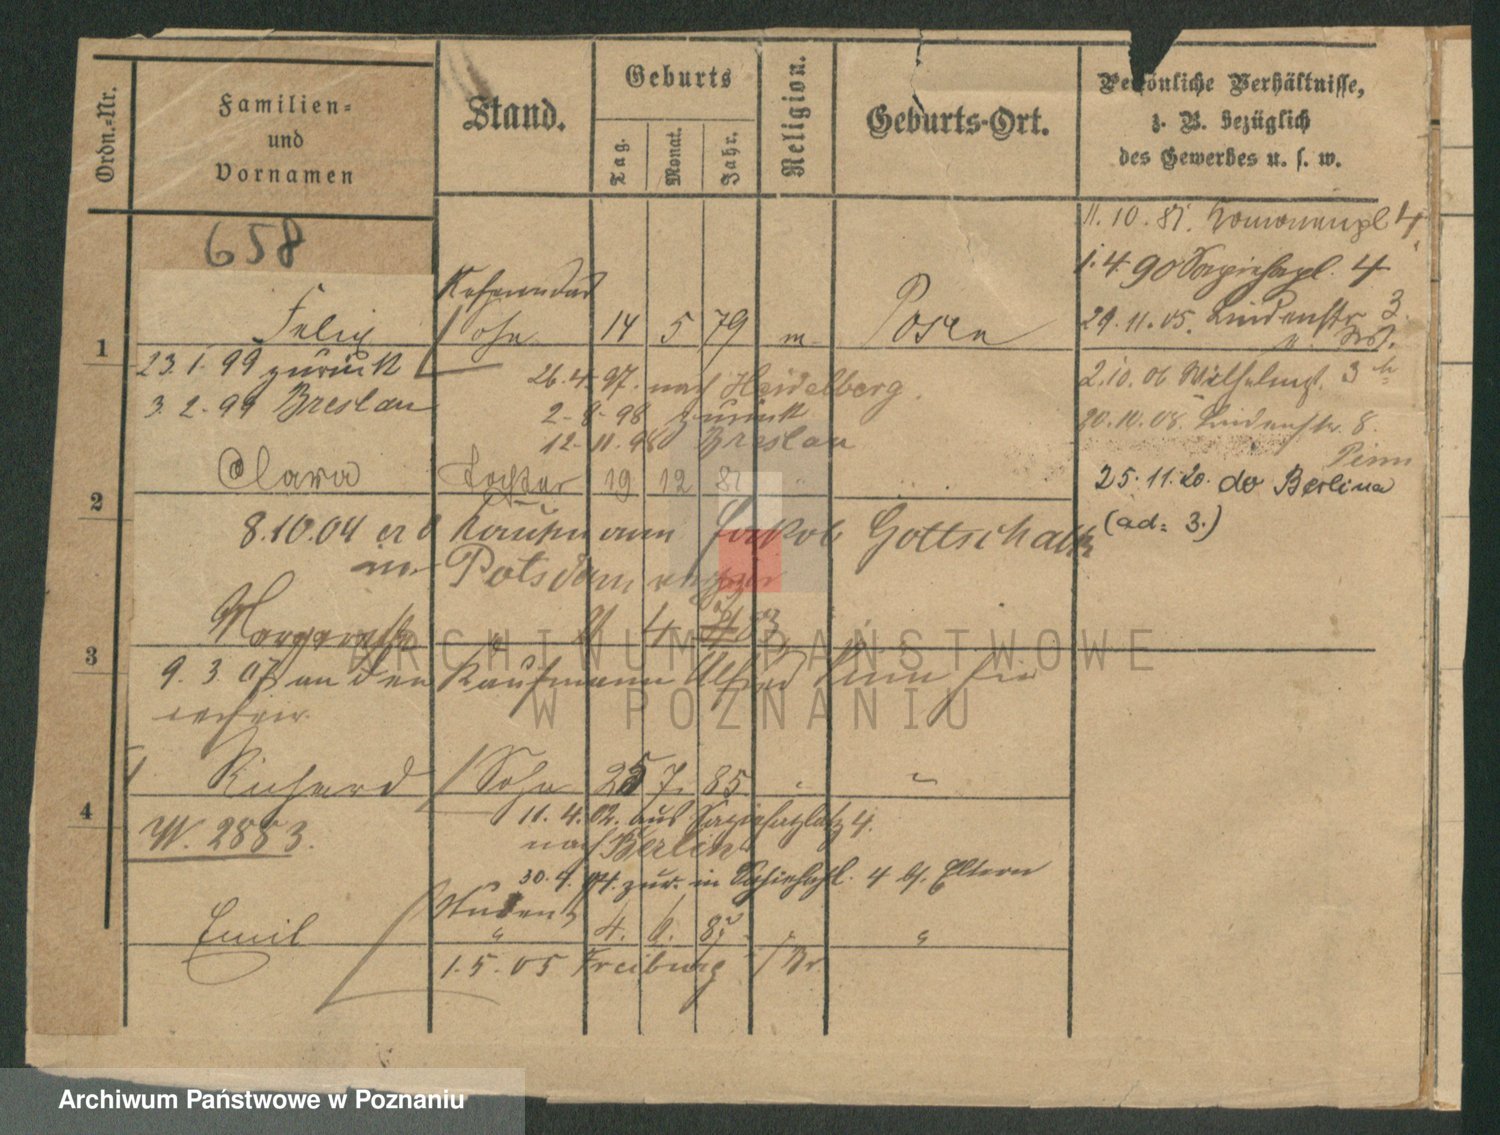 Ordn.-Nr.
Familien-
und
Vornamen
Stand.
Geburts
Tag.
Monat.
Jahr.
Religion.
Geburts-Ort.
Persönliche Verhältnisse,
z. B. bezüglich
des Gewerbes u. s. w.
658
11.10.81. 4
1.4.90 Sapiehapl. 4
Referendar
1 Felix Sohn 14 5 79 m Posen
29.11.05. Lindenstr. 3.
23.1.99 zurück
26.4.97. nach Heidelberg.
2.10.06 Wilhelmspl. 3
3.2.99 Breslau
2-8-98 zurück
20.10.08. Lindenstr. 8.
12-11.98 Breslau
Pinn
2 Clara Tochter 19 12 81
25.11.20. do Berlin
(ad. 3.)
8.10.04 Kaufmann Jakob Gottschalk
in Potsdam
3 Margarethe 4 83
9.3.07 an den Kaufmann Alfred Pinn hier
Richard Sohn 25 7. 85 " "
4
11.4.02. aus Sapiehaplatz 4.
W. 2883.
nach Berlin
30.4.04. zur. in Sapiehapl. 4 b. Eltern
Student
Emil " 4. 6. "
1.5.05 Freiburg i/Br
ARCHIWUM PAŃSTWOWE
W POZNANIU
Archiwum Państwowe w Poznaniu